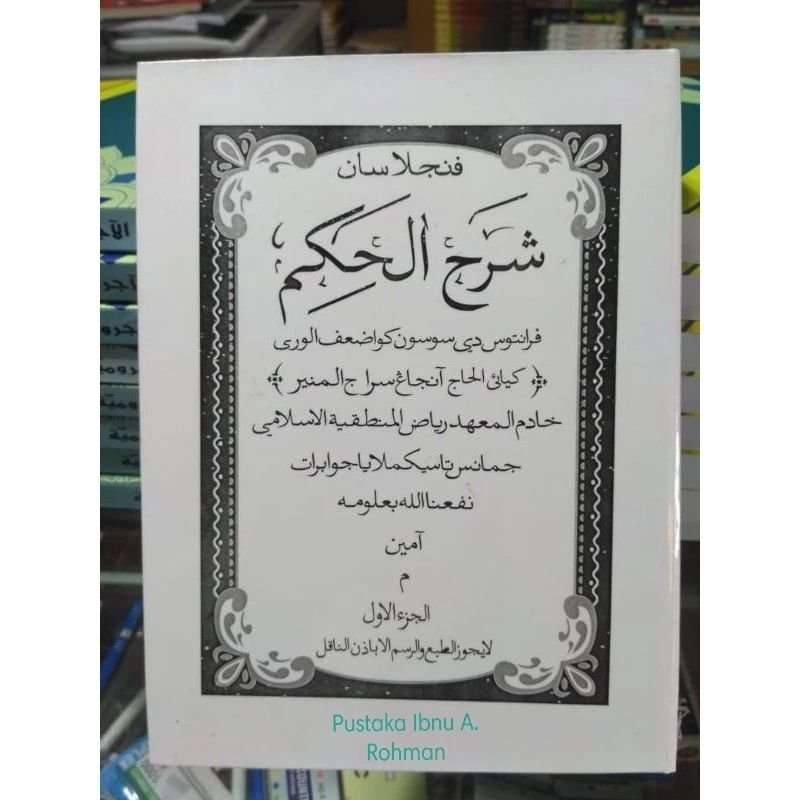 فنجلاسان
شرح الحكم
فرانتوس دي سوسون كو اضعف الورى
﴿ كيائي الحاج آنجاڠ سراج المنير ﴾
خادم المعهد رياض المنطقية الاسلامي
جمانس تاسيكملايا جوا برات
نفعنا الله بعلومه
آمين
م
الجزء الاول
لايجوز الطبع والرسم الا باذن الناقل
Pustaka Ibnu A.
Rohman